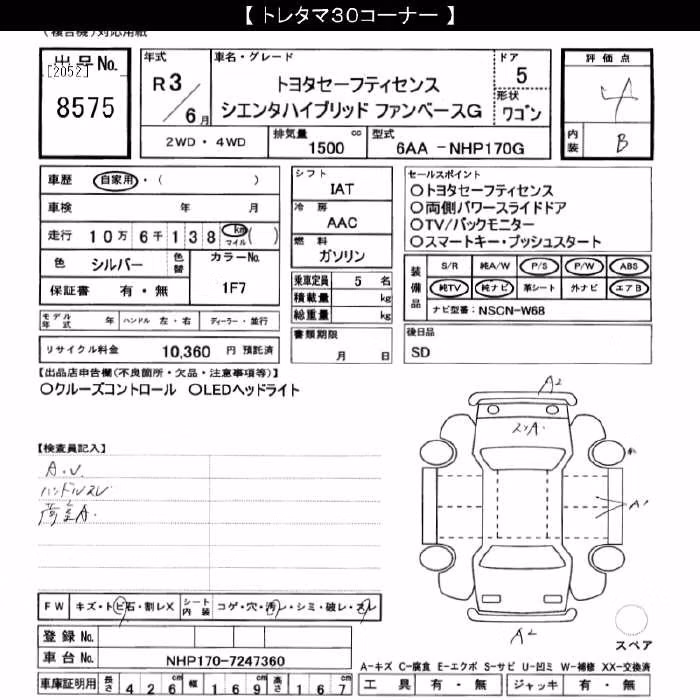 【 トレタマ30コーナー 】
(複合紙)対応用紙
出品No.
[2052]
8575
年式
R3/6月
車名・グレード
トヨタセーフティセンス
シエンタハイブリッド ファンベースG
ドア
5
形状
ワゴン
評価点
4
内装
B
2WD・4WD
排気量
1500 cc
型式
6AA -NHP170G
車歴 自家用・( )
車検 年 月
走行 10万 6千138 km マイル ( )
色 シルバー 色替
カラーNo.
1F7
保証書 有・無
シフト
IAT
冷房
AAC
燃料
ガソリン
乗車定員 5 名
積載量 kg
総重量 kg
セールスポイント
○トヨタセーフティセンス
○両側パワースライドドア
○TV/バックモニター
○スマートキー・プッシュスタート
装備品
S/R 純A/W P/S P/W ABS
純TV 純ナビ 革シート 外ナビ エアB
ナビ型番: NSCN-W68
モデル年式 年 ハンドル 左・右 ディーラー・並行
リサイクル料金 10,360 円 預託済
書類期限
月 日
後日品
SD
【出品店申告欄(不良箇所・欠品・注意事項等)】
○クルーズコントロール ○LEDヘッドライト
【検査員記入】
A.U.
ハンドルスレ
A2
A.
A1
A2
スペア
FW キズ・トビ石・割レX
シート内装 コゲ・穴・汚レ・シミ・破レ・スレ
登録No.
車台No. NHP170-7247360
車庫証明用 長さ 426 cm 幅 169 cm 高さ 167 cm
A-キズ C-腐食 E-エクボ S-サビ U-凹ミ W-補修 XX-交換済
工具 有・無 ジャッキ 有・無